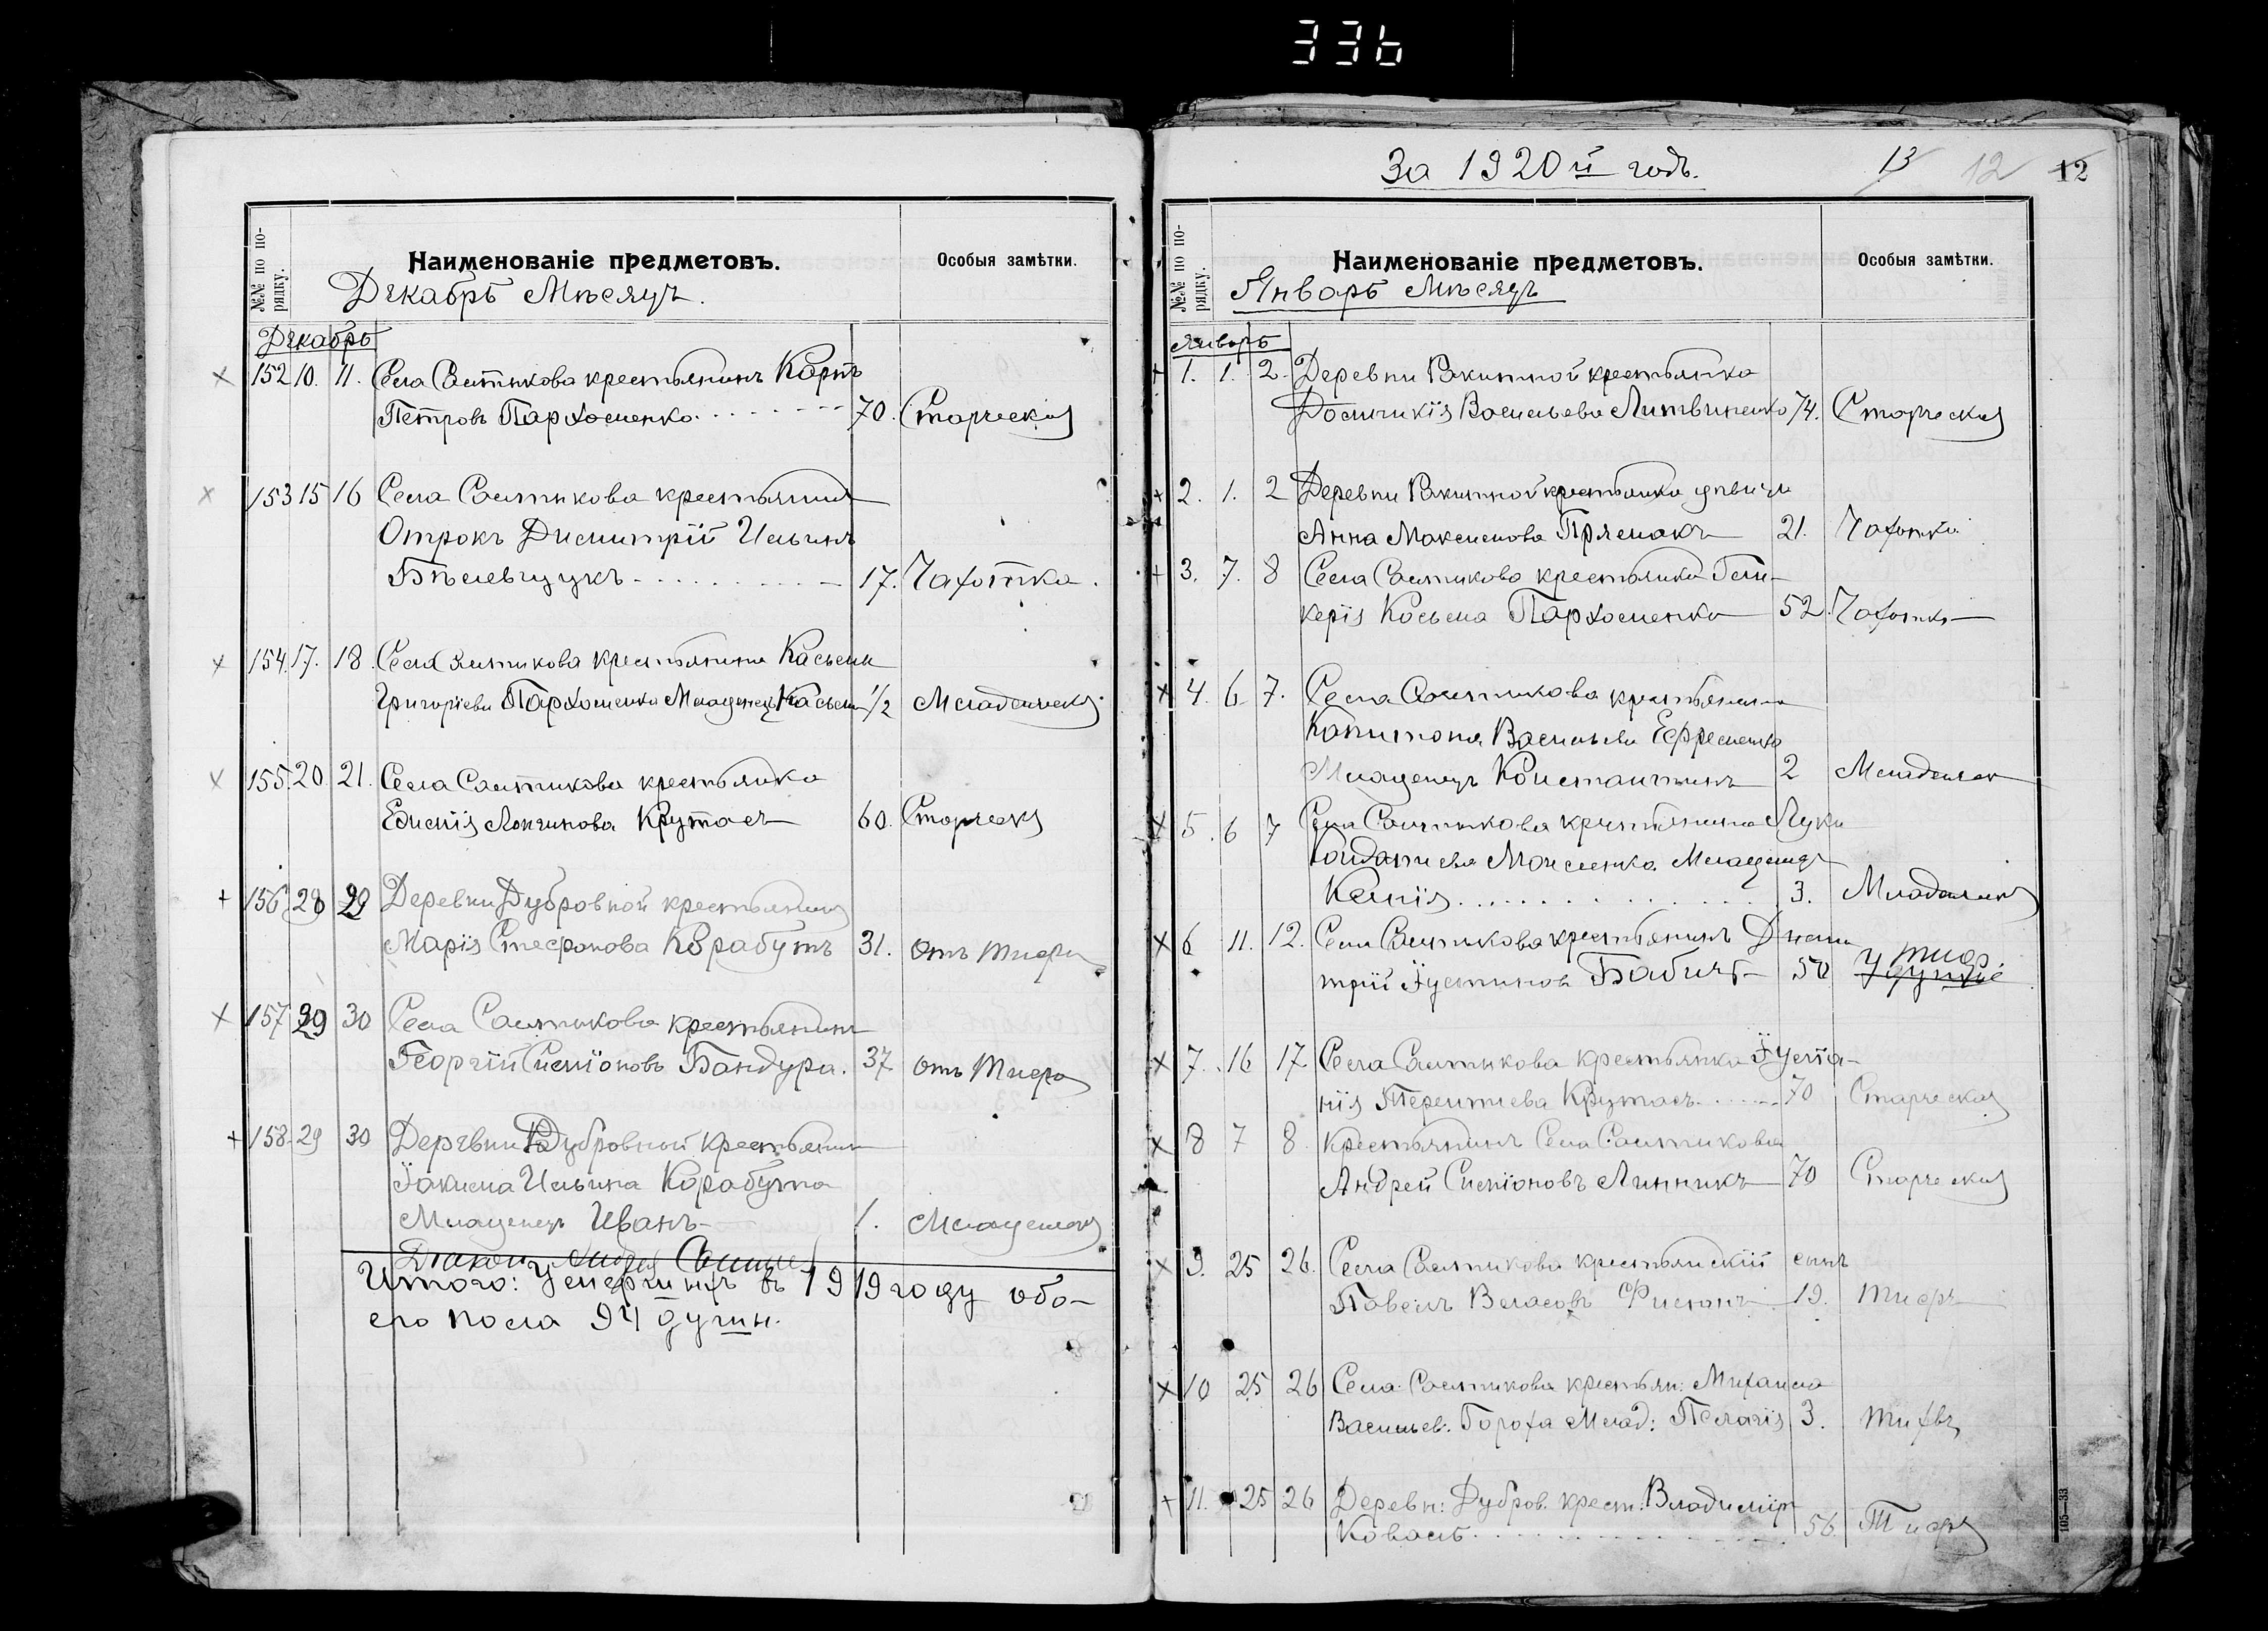 336
№№ по по-
рядку.
Наименованіе предметовъ.
Особыя замѣтки.
Декабрь Мѣсяцъ.
Декабрь
152 10. 11. Села Салтыкова крестьянинъ Карпъ
Петровъ Пархоменко. 70. Старческая
153 15 16 Села Салтыкова крестьянинъ
Отрокъ Димитрій Ильинъ
17. Чахотка.
154. 17. 18. Села Салтыкова крестьянина Касьяна
Григоріева Пархоменка Младенецъ Касьянъ 1/2 Младенческ.
155. 20. 21. Села Салтыкова крестьянка
Логгинова Крутась 60. Старческ
156 28 29 Деревни Дубровной крестьянка
Марія Стефанова Карабутъ 31. Отъ тифа
157 29 30 Села Салтыкова крестьянинъ
Георгій Симіоновъ Бандура. 37 Отъ Тифа
158. 29 30 Деревни Дубровный крестьянина
Їакима Ильина Карабута
Младенецъ Иванъ 1. Младенческ
Итого: Умершихъ въ 1919 году обо-
его пола 94 души.
За 1920й годъ.
13 12 12
№№ по по-
рядку.
Наименованіе предметовъ.
Особыя замѣтки.
Январь Мѣсяцъ
Январь
1. 1. 2. Деревни Ракитной крестьянка
Домникія Васильева Литвиненко 74. Старческая
2. 1. 2 Деревни Ракитной крестьянка дѣвица
Анна Максимова 21. Чахотка
3. 7. 8 Села Салтыкова крестьянка Гли-
керія Косьма Пархоменко 52. Чахотка
4. 6. 7. Села Салтыкова крестьянина
Капитона Васильева Ефременка
Младенецъ Константинъ 2 Младенческ
5. 6 7 Села Салтыкова крестьянина Луки
Моисеенка Младенецъ
Ксенія 3. Младенческ
6 11. 12. Села Салтыкова крестьянинъ Дими-
трій Їустиновъ Бабичъ 50 тиф.
7. 16 17 Села Салтыкова крестьянка Їуста-
нія Терентіева Крутась 70 Старческая
8 7 8. Крестьянинъ Села Салтыкова
Андрей Симіоновъ Линникъ 70 Старческая
9. 25 26. Села Салтыкова крестьянскій сынъ
Павелъ Власовъ 19. Тифъ
10 25 26 Села Салтыкова крестьян: Михаила
Васильев. Гороха Млад: Пелагія 3. тифъ
11. 25 26 Деревн: Дубров. крест: Владиміръ
Коваль 56. Тифъ
105—33